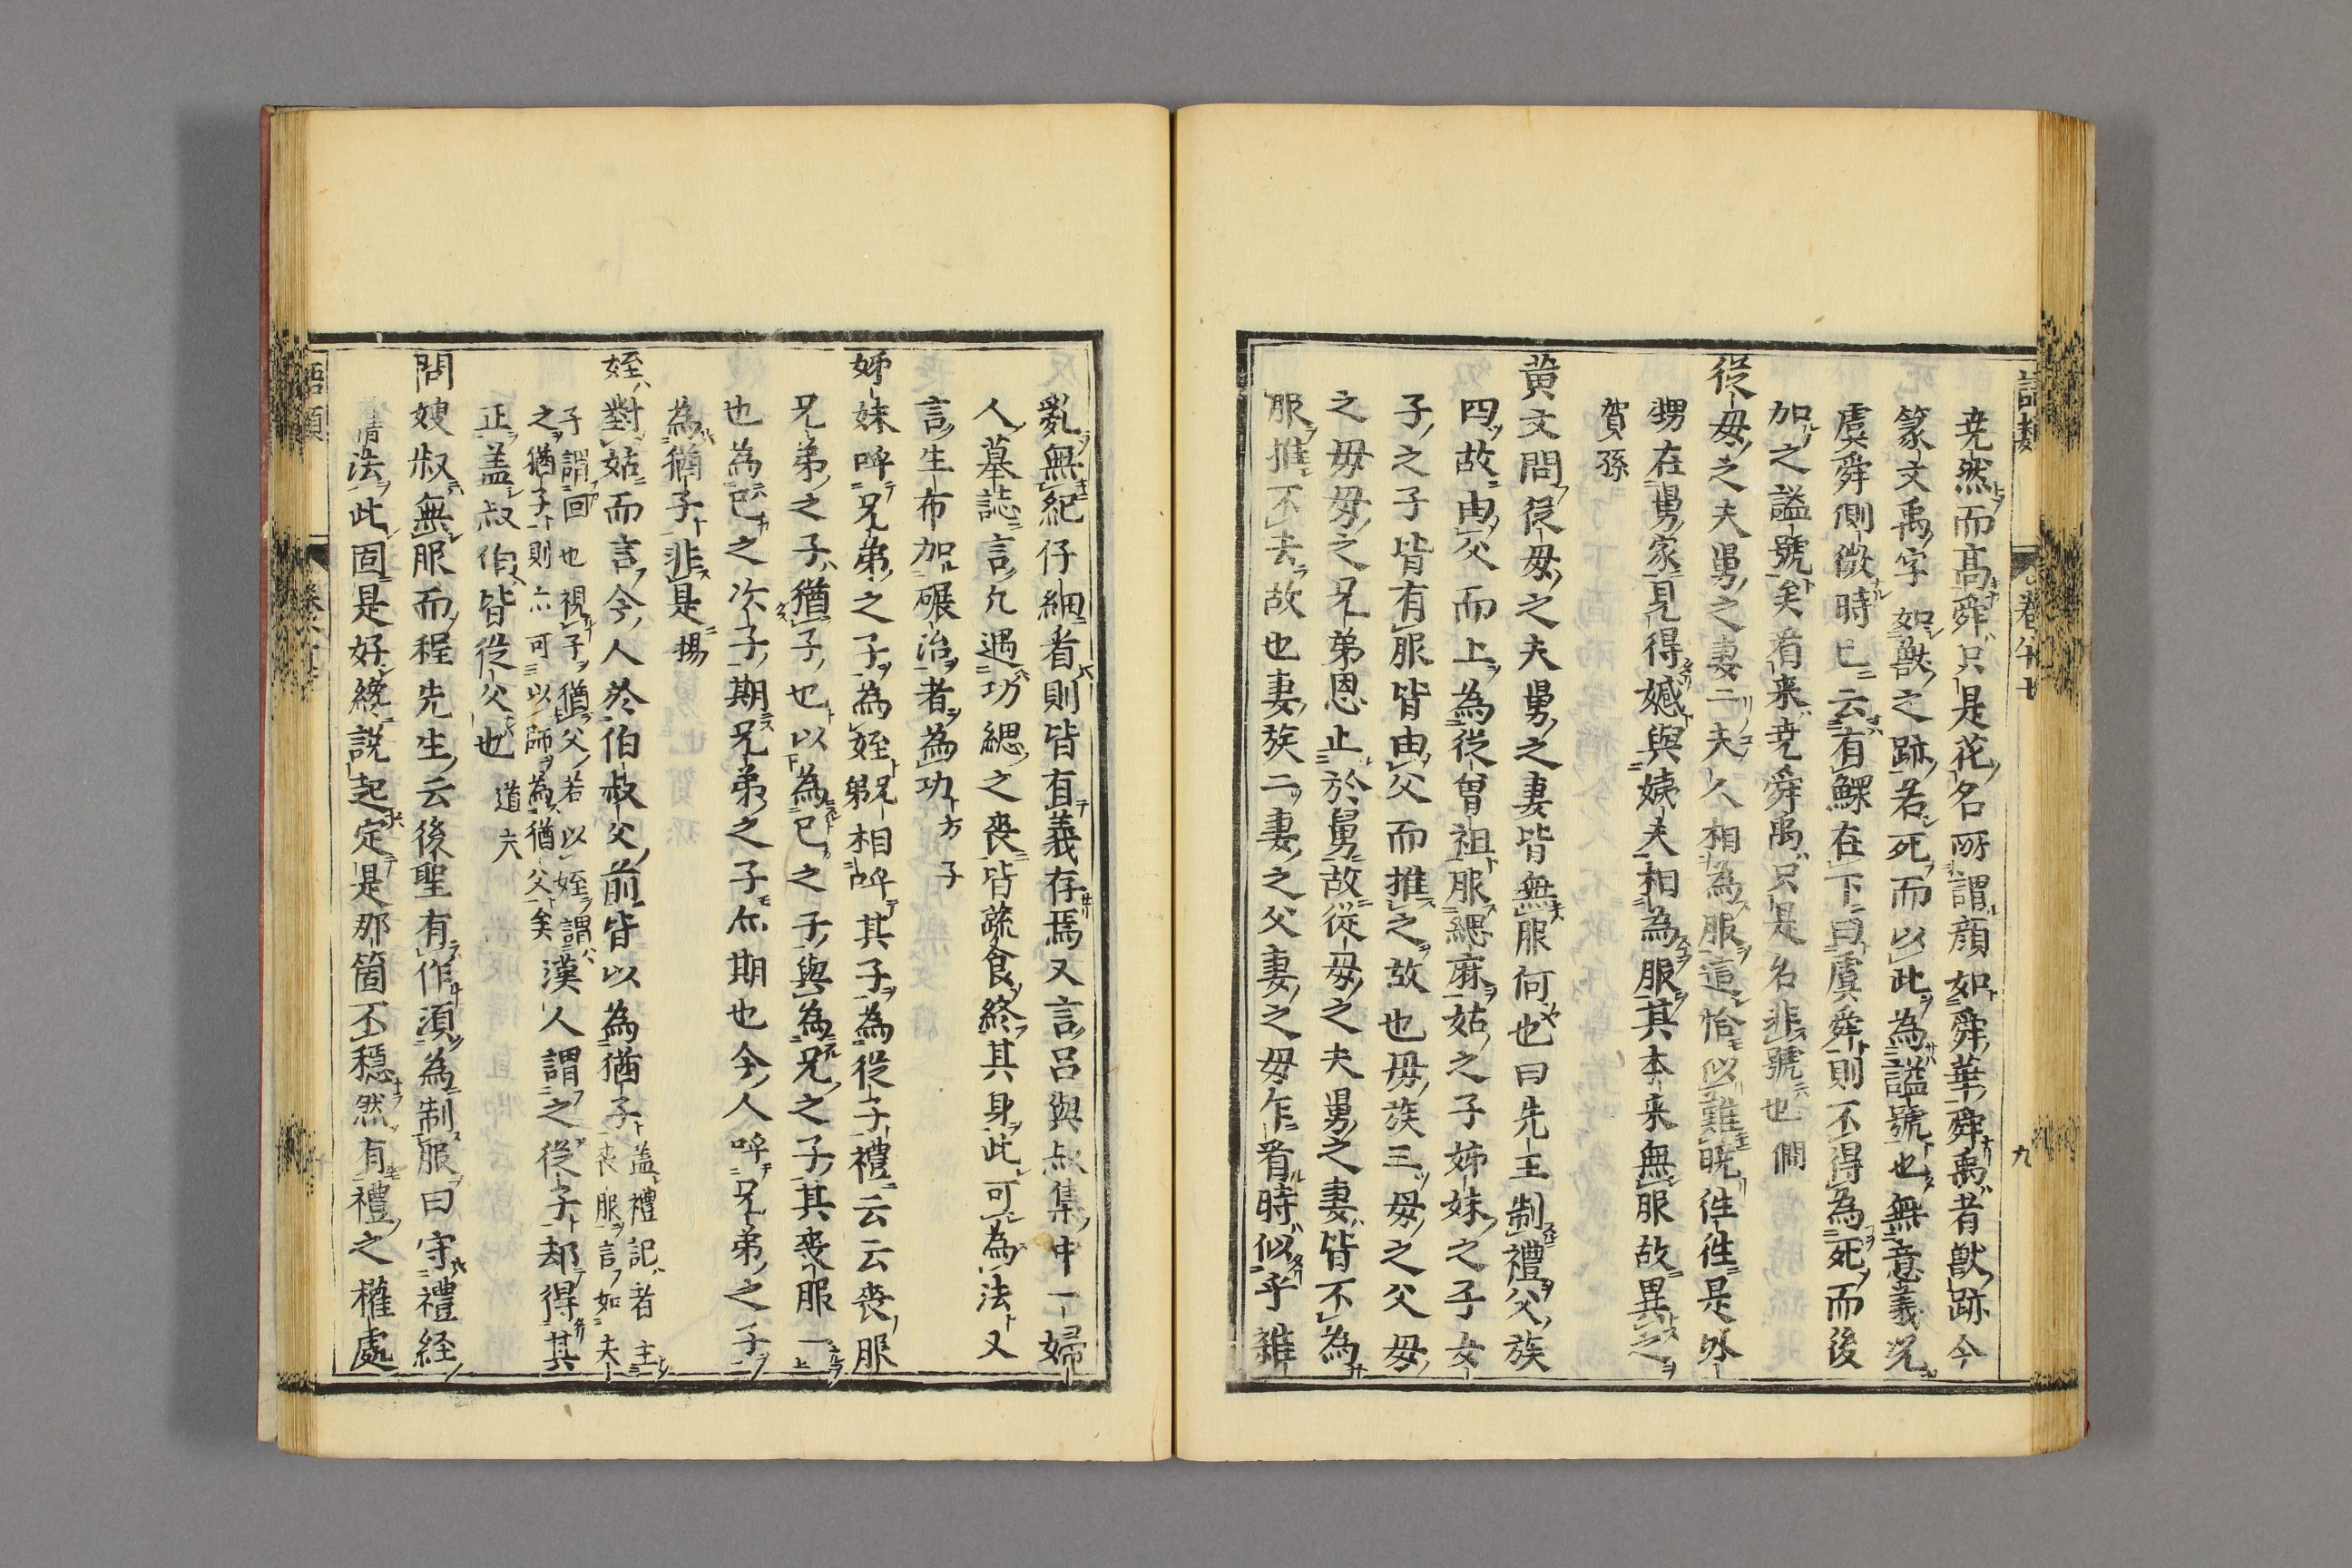 語類
卷八十七
九
尭然而高舜只是花名所謂顔如舜華舜禹者獣跡今
篆文禹字如獣之跡若死而以此為謚號也無意義况
虞舜側微時已云有鰥在下曰虞舜則不得為死而後
加之謚號矣看来尭舜禹只是名非號也僩
從母之夫舅之妻二夫人相為服這恰似難曉徃徃是外
甥在舅家見得㜅與姨夫相為服其本来無服故異之
賀孫
黄文問從母之夫舅之妻皆無服何也曰先王制禮父族
四故由父而上為從曽祖服緦麻姑之子姊妹之子女
子之子皆有服皆由父而推之故也母族三母之父母
之母母之兄弟恩止於舅故從母之夫舅之妻皆不為
服推不去故也妻族二妻之父妻之母乍看時似乎雜
亂無紀仔細看則皆有義存焉又言呂與叔集中一婦
人墓誌言凢遇功緦之喪皆蔬食終其身此可為法又
言生布加碾治者為功方子
姊妹呼兄弟之子為姪兄弟相呼其子為從子禮云云喪服
兄弟之子猶子也以為己之子與為兄之子其喪服一
也為己之次子期兄弟之子亦期也今人呼兄弟之子
為猶子非是揚
姪對姑而言今人於伯叔父前皆以為猶子盖禮記者主
喪服言如夫
子謂回也視子猶父若以姪謂
之猶子則亦可以師為猶父矣漢人謂之從子却得其
正盖叔伯皆從父也道夫
問嫂叔無服而程先生云後聖有作須為制服曰守禮経
舊法此固是好纔說起定是那箇不穩然有禮之權處
語類
卷八十七